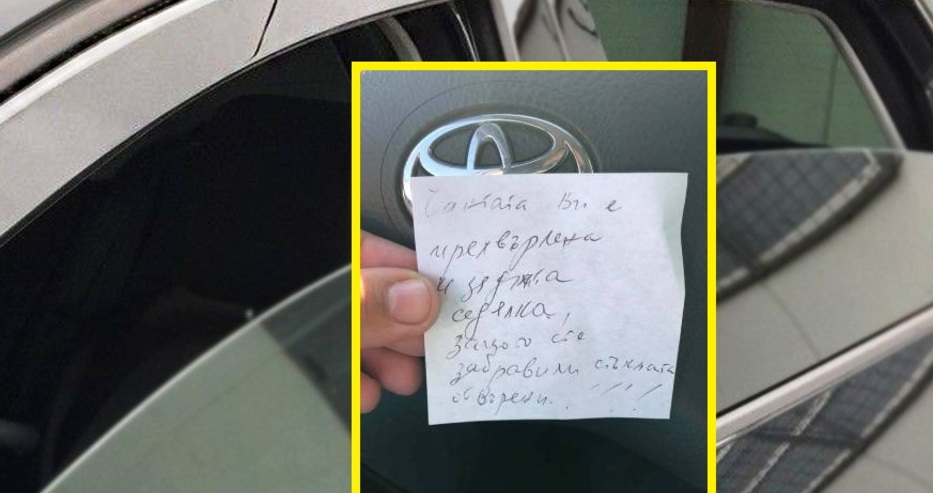 Чантата Ви е
прехвърлена
и задната
седалка,
защото сте
забравили стъклата
отворени. ! ! !